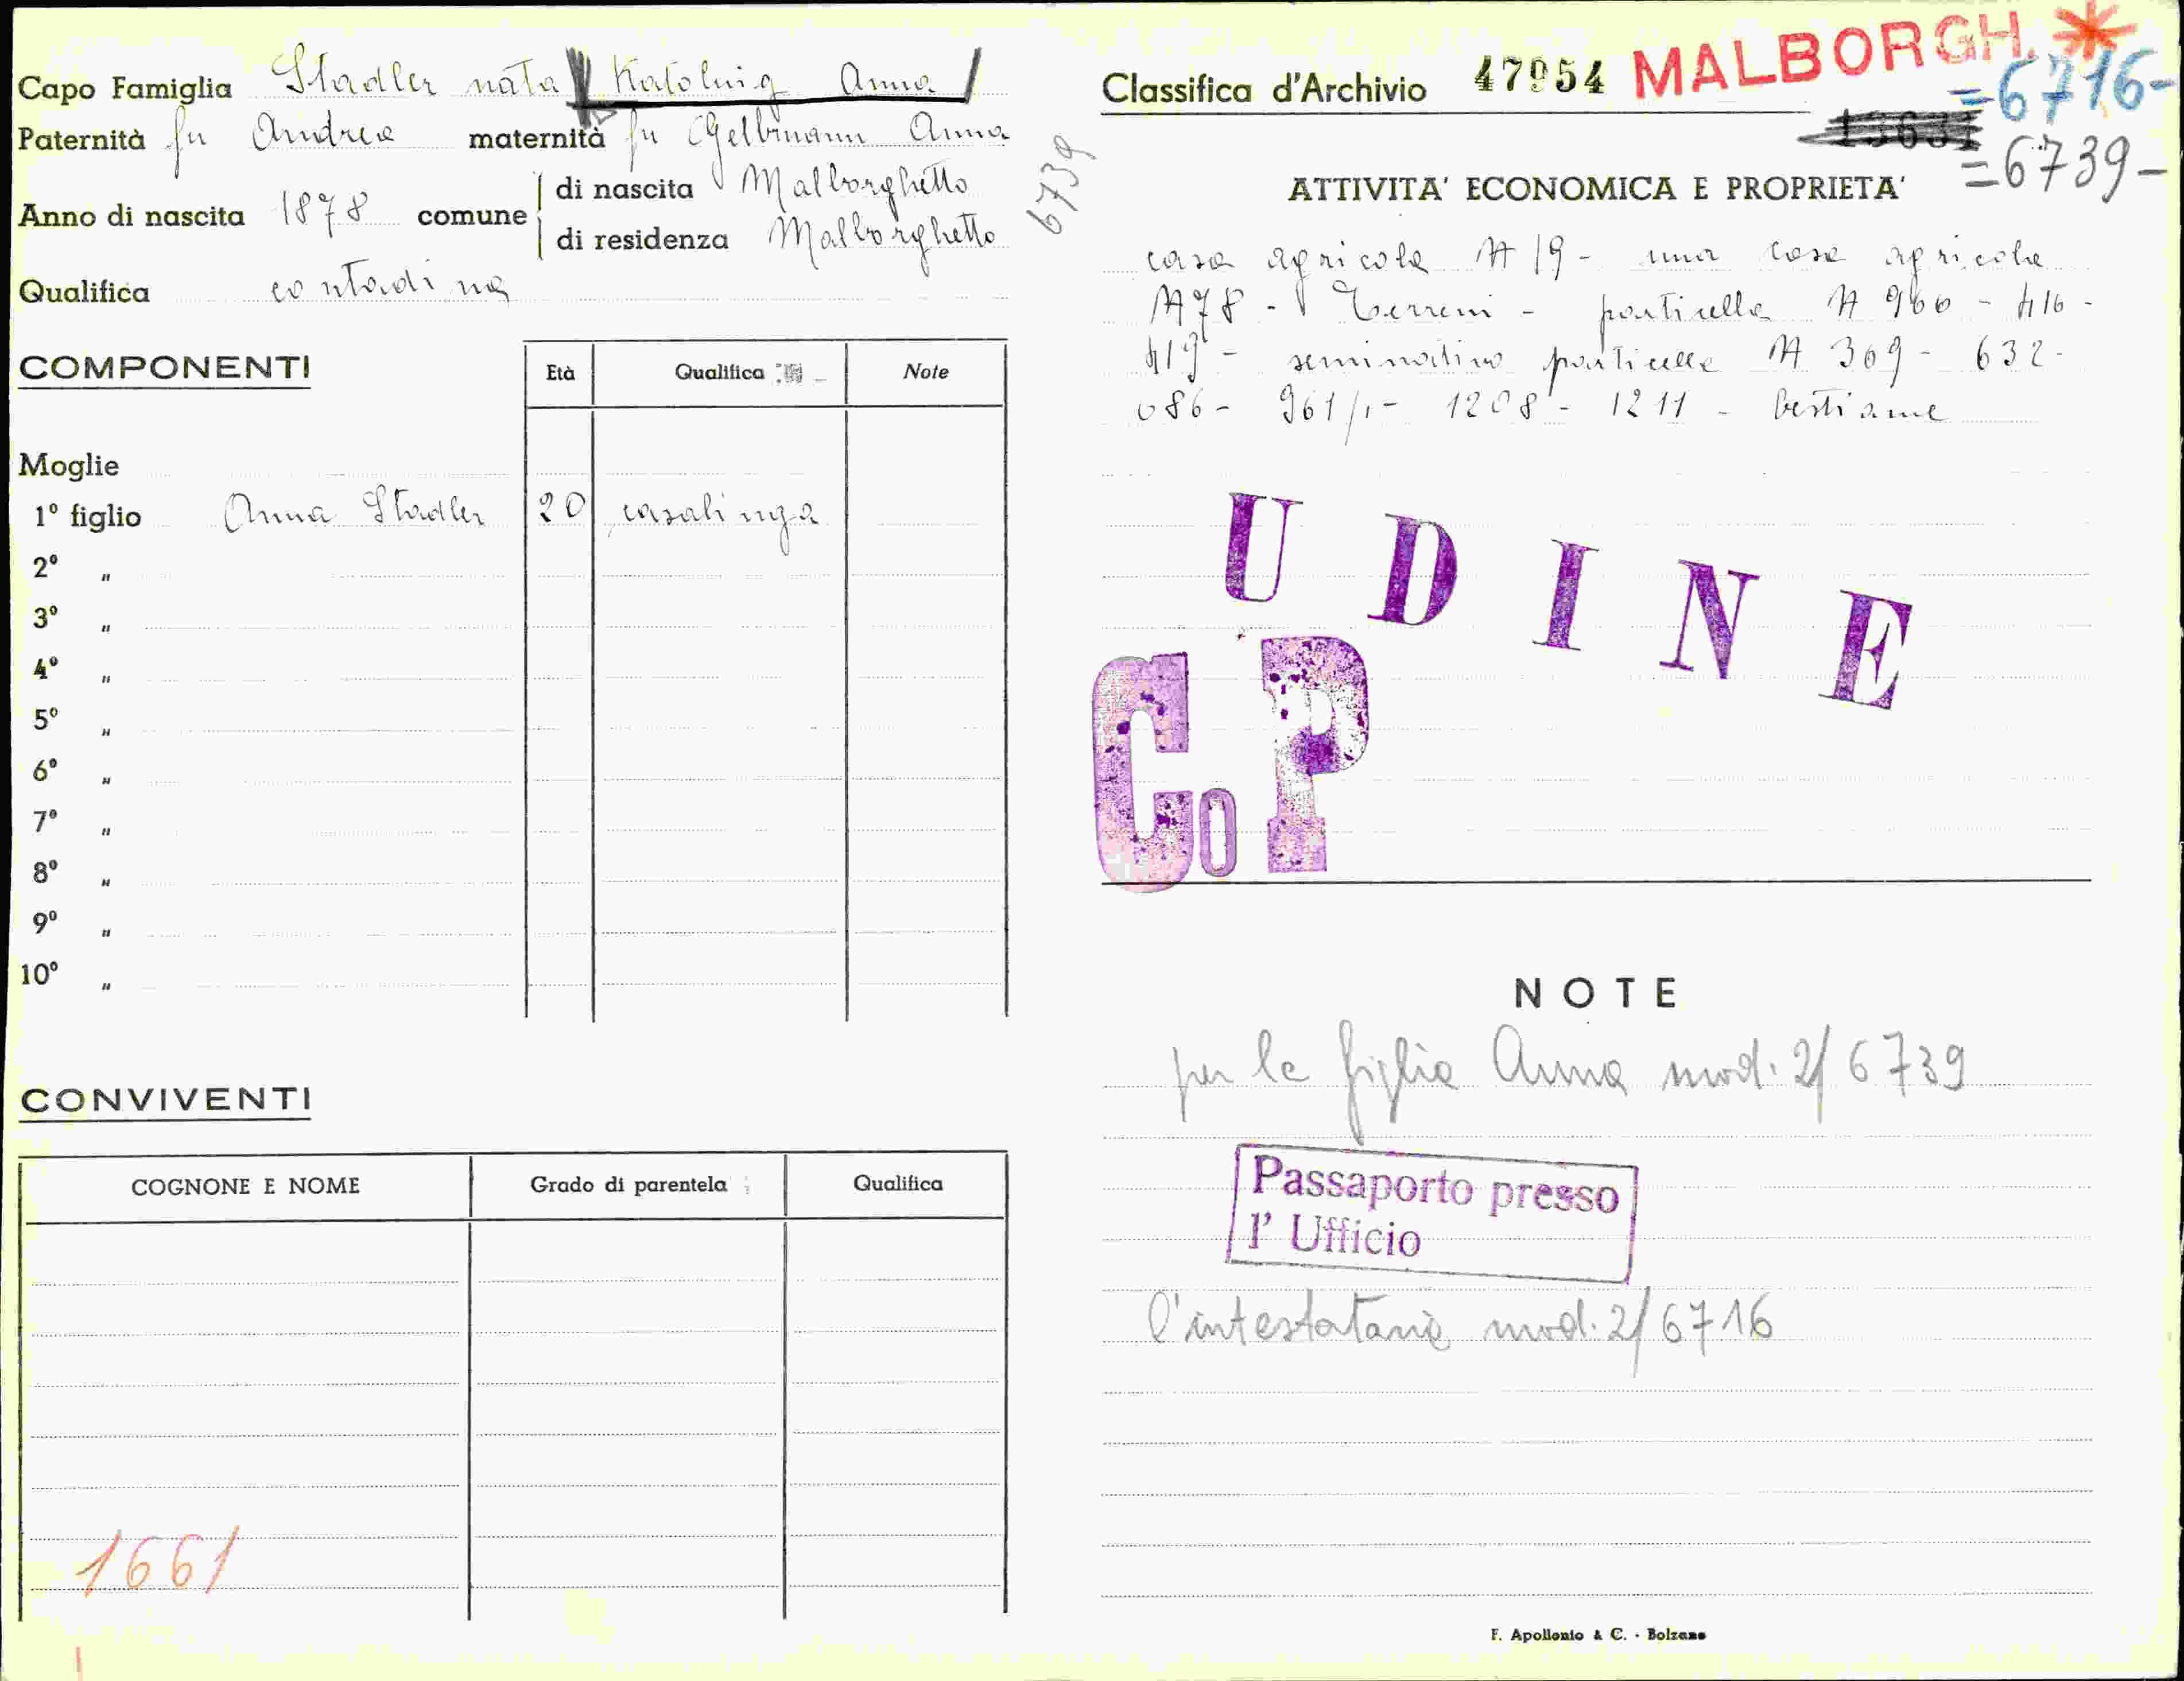 Capo Famiglia Stadler nata Katolnig Anna
Paternità fu Andrea maternità fu Gelbmann Anna
Anno di nascita 1878 comune di nascita Malborghetto
di residenza Malborghetto
Qualifica contadina
6739
COMPONENTI
Età Qualifica Note
Moglie
1° figlio Anna Stadler 20 casalinga
2° "
3° "
4° "
5° "
6° "
7° "
8° "
9° "
10° "
CONVIVENTI
COGNONE E NOME Grado di parentela Qualifica
1661
Classifica d'Archivio 47954 MALBORGH.
=6716-
=6739-
ATTIVITA' ECONOMICA E PROPRIETA'
casa agricola N 19 - una casa agricola
N 78 - Terreni - particella N 966 - 416 -
419 - seminativo particelle N 369 - 632 -
086 - 961/1 - 1208 - 1211 - bestiame
UDINE
CoP
NOTE
per la figlia Anna mod. 2/6739
Passaporto presso
l' Ufficio
l'intestataria mod. 2/6716
F. Apollonio & C. - Bolzano